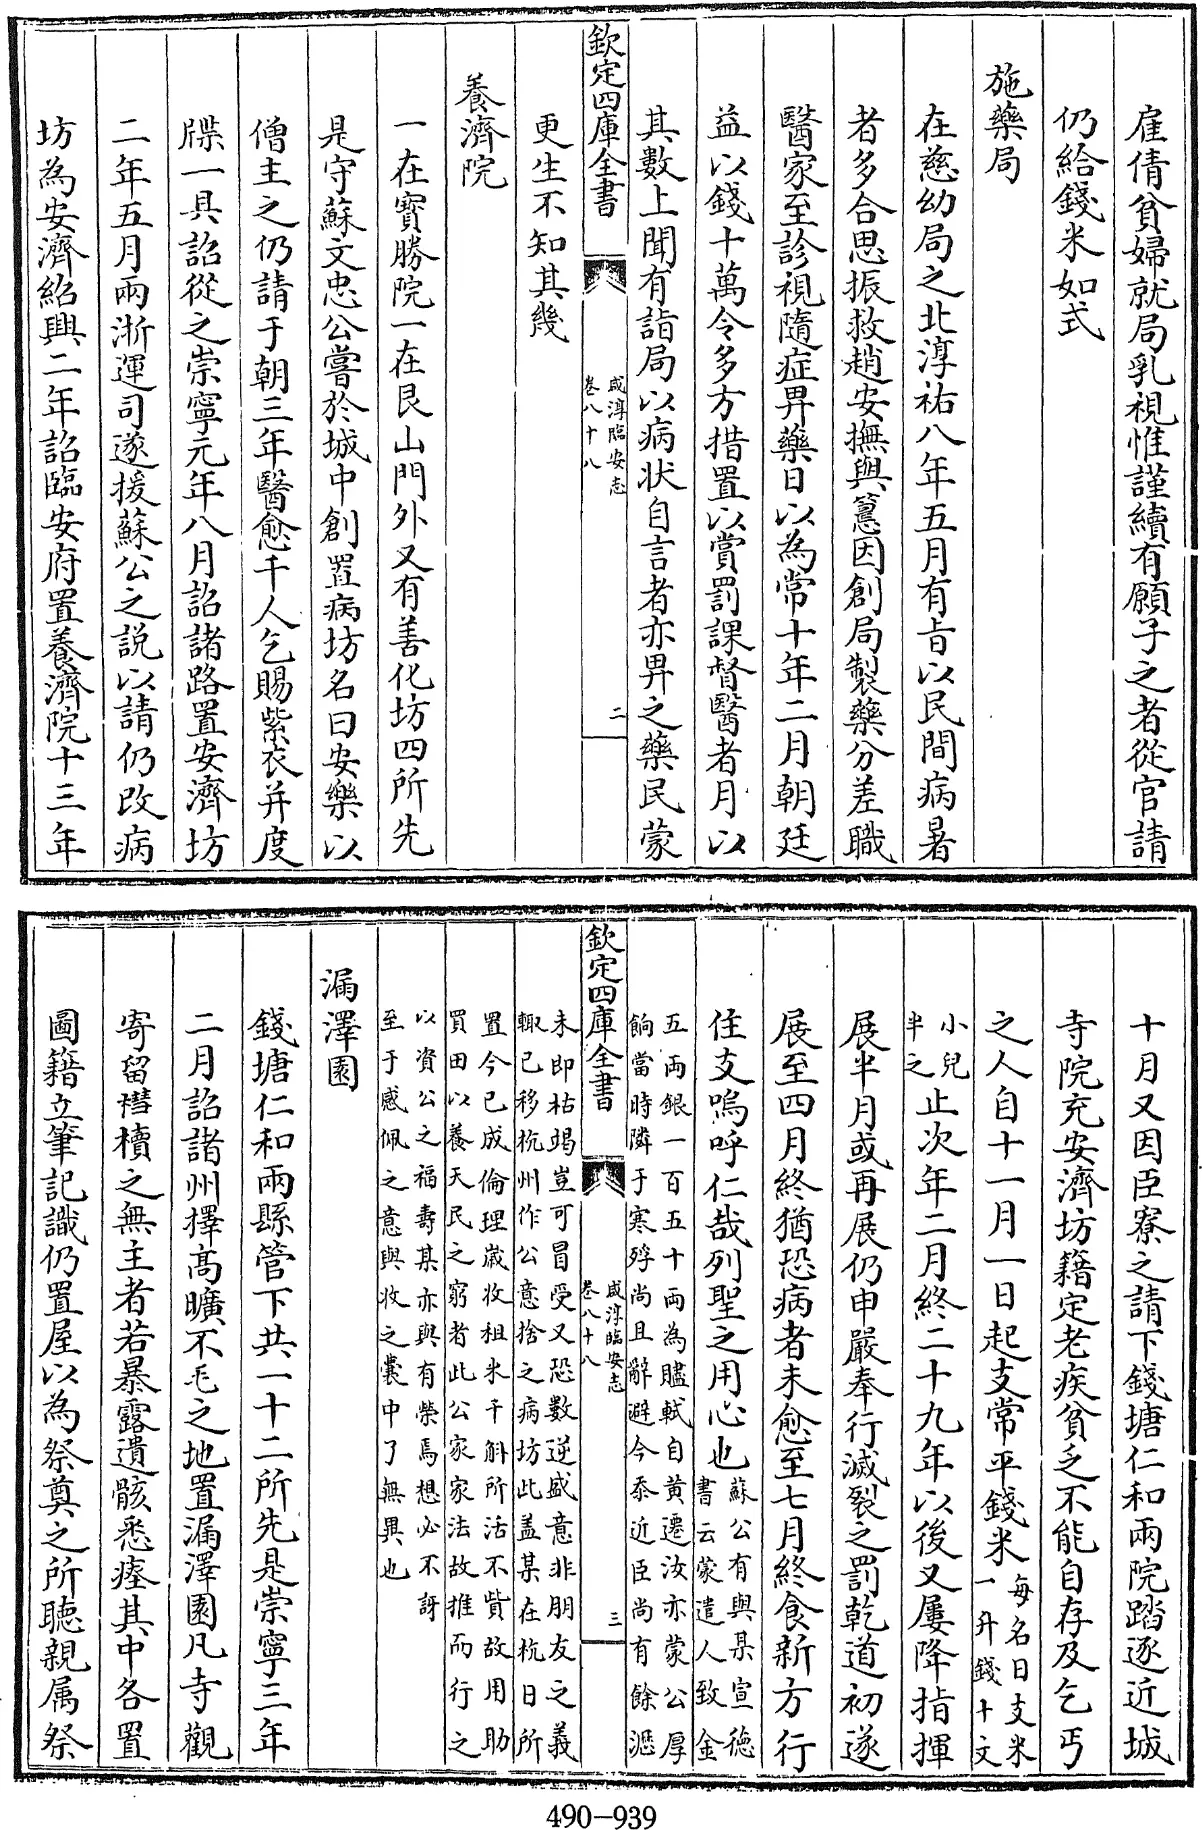 雇倩貧婦就局乳視惟謹續有願子之者從官請
仍給錢米如式
施藥局
在慈幼局之北淳祐八年五月有旨以民間病暑
者多合思振救趙安撫與𥲅因創局製藥分差職
醫家至診視隨症畀藥日以為常十年二月朝廷
益以錢十萬令多方措置以賞罰課督醫者月以
其數上聞有詣局以病狀自言者亦畀之藥民蒙
欽定四庫全書
咸淳臨安志
卷八十八
二
更生不知其幾
養濟院
一在寳勝院一在艮山門外又有善化坊四所先
是守蘇文忠公嘗於城中創置病坊名曰安樂以
僧主之仍請于朝三年醫愈千人乞賜紫衣并度
牒一具詔從之崇寧元年八月詔諸路置安濟坊
二年五月兩浙運司遂援蘇公之説以請仍改病
坊為安濟紹興二年詔臨安府置養濟院十三年
十月又因臣寮之請下錢塘仁和兩院踏逐近城
寺院充安濟坊籍定老疾貧乏不能自存及乞丐
之人自十一月一日起支常平錢米每名日支米
一升錢十文
小兒
半之止次年二月終二十九年以後又屢降指揮
展半月或再展仍申嚴奉行滅裂之罰乾道初遂
展至四月終猶恐病者未愈至七月終食新方行
住支嗚呼仁哉列聖之用心也蘇公有與某宣德
書云蒙遣人致金
五兩銀一百五十兩為贐軾自黃遷汝亦蒙公厚
餉當時隣于寒殍尚且辭避今忝近臣尚有餘瀝
欽定四庫全書
咸淳臨安志
卷八十八
三
未即枯竭豈可冒受又恐數逆盛意非朋友之義
輙已移杭州作公意捨之病坊此盖某在杭日所
置今已成倫理嵗收租米千斛所活不貲故用助
買田以養天民之窮者此公家家法故推而行之
以資公之福壽某亦與有榮焉想必不訝
至于感佩之意與收之囊中了無異也
漏澤園
錢塘仁和兩縣管下共一十二所先是崇寧三年
二月詔諸州擇髙曠不毛之地置漏澤園凡寺觀
寄留槥櫝之無主者若暴露遺骸悉瘞其中各置
圖籍立筆記識仍置屋以為祭奠之所聽親属祭
490-939